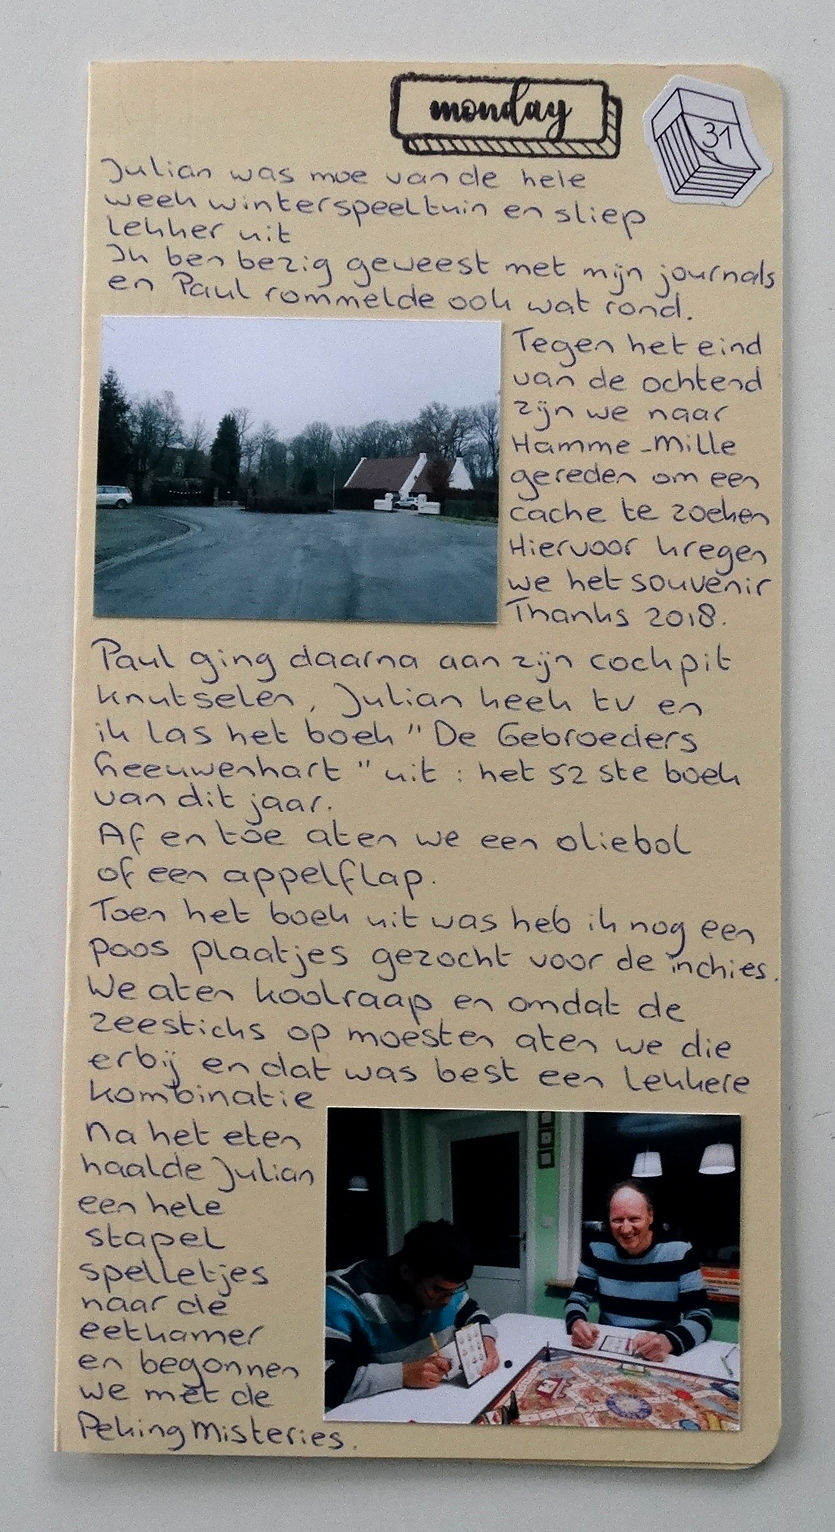 monday
31
Julian was moe van de hele
week winterspeeltuin en sliep
lekker uit
Ik ben bezig geweest met mijn journals
en Paul rommelde ook wat rond.
Tegen het eind
van de ochtend
zijn we naar
Hamme-Mille
gereden om een
cache te zoeken
Hiervoor kregen
we het souvenir
Thanks 2018.
Paul ging daarna aan zijn cockpit
knutselen, Julian keek tv en
ik las het boek "De Gebroeders
Leeuwenhart" uit : het 52 ste boek
van dit jaar.
Af en toe aten we een oliebol
of een appelflap.
Toen het boek uit was heb ik nog een
poos plaatjes gezocht voor de inchies.
We aten koolraap en omdat de
zeesticks op moesten aten we die
erbij en dat was best een lekkere
kombinatie
Na het eten
haalde Julian
een hele
stapel
spelletjes
naar de
eetkamer
en begonnen
we met de
Peking Misteries.